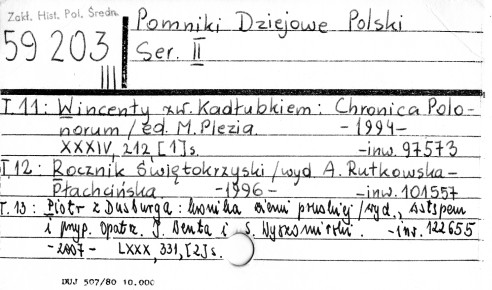 Zakł. Hist. Pol. Średn.
59203
III
Pomniki Dziejowe Polski
Ser. II
T. 11: Wincenty zw. Kadłubkiem: Chronica Polo-
norum / ed. M. Plezia. - 1994 -
XXXIV, 212 [1] s. - inw. 97573
T 12: Rocznik Świętokrzyski / wyd. A. Rutkowska-
Płachcińska - 1996 - - inw. 101557
T. 13: Piotr z Dusburga: Kronika ziemi pruskiej / wyd., wstępem
i przyp. opatrz. J. Wenta i S. Wyszomirski. - inw. 122655
- 2007 - LXXX, 331, [2] s.
DUJ 507/80 10.000